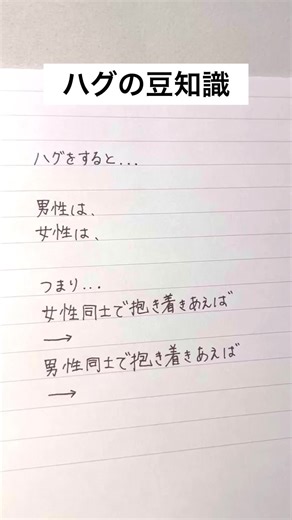 ハグの豆知識
ハグをすると...
男性は、
女性は、
つまり...
女性同士で抱き着きあえば
→
男性同士で抱き着きあえば
→